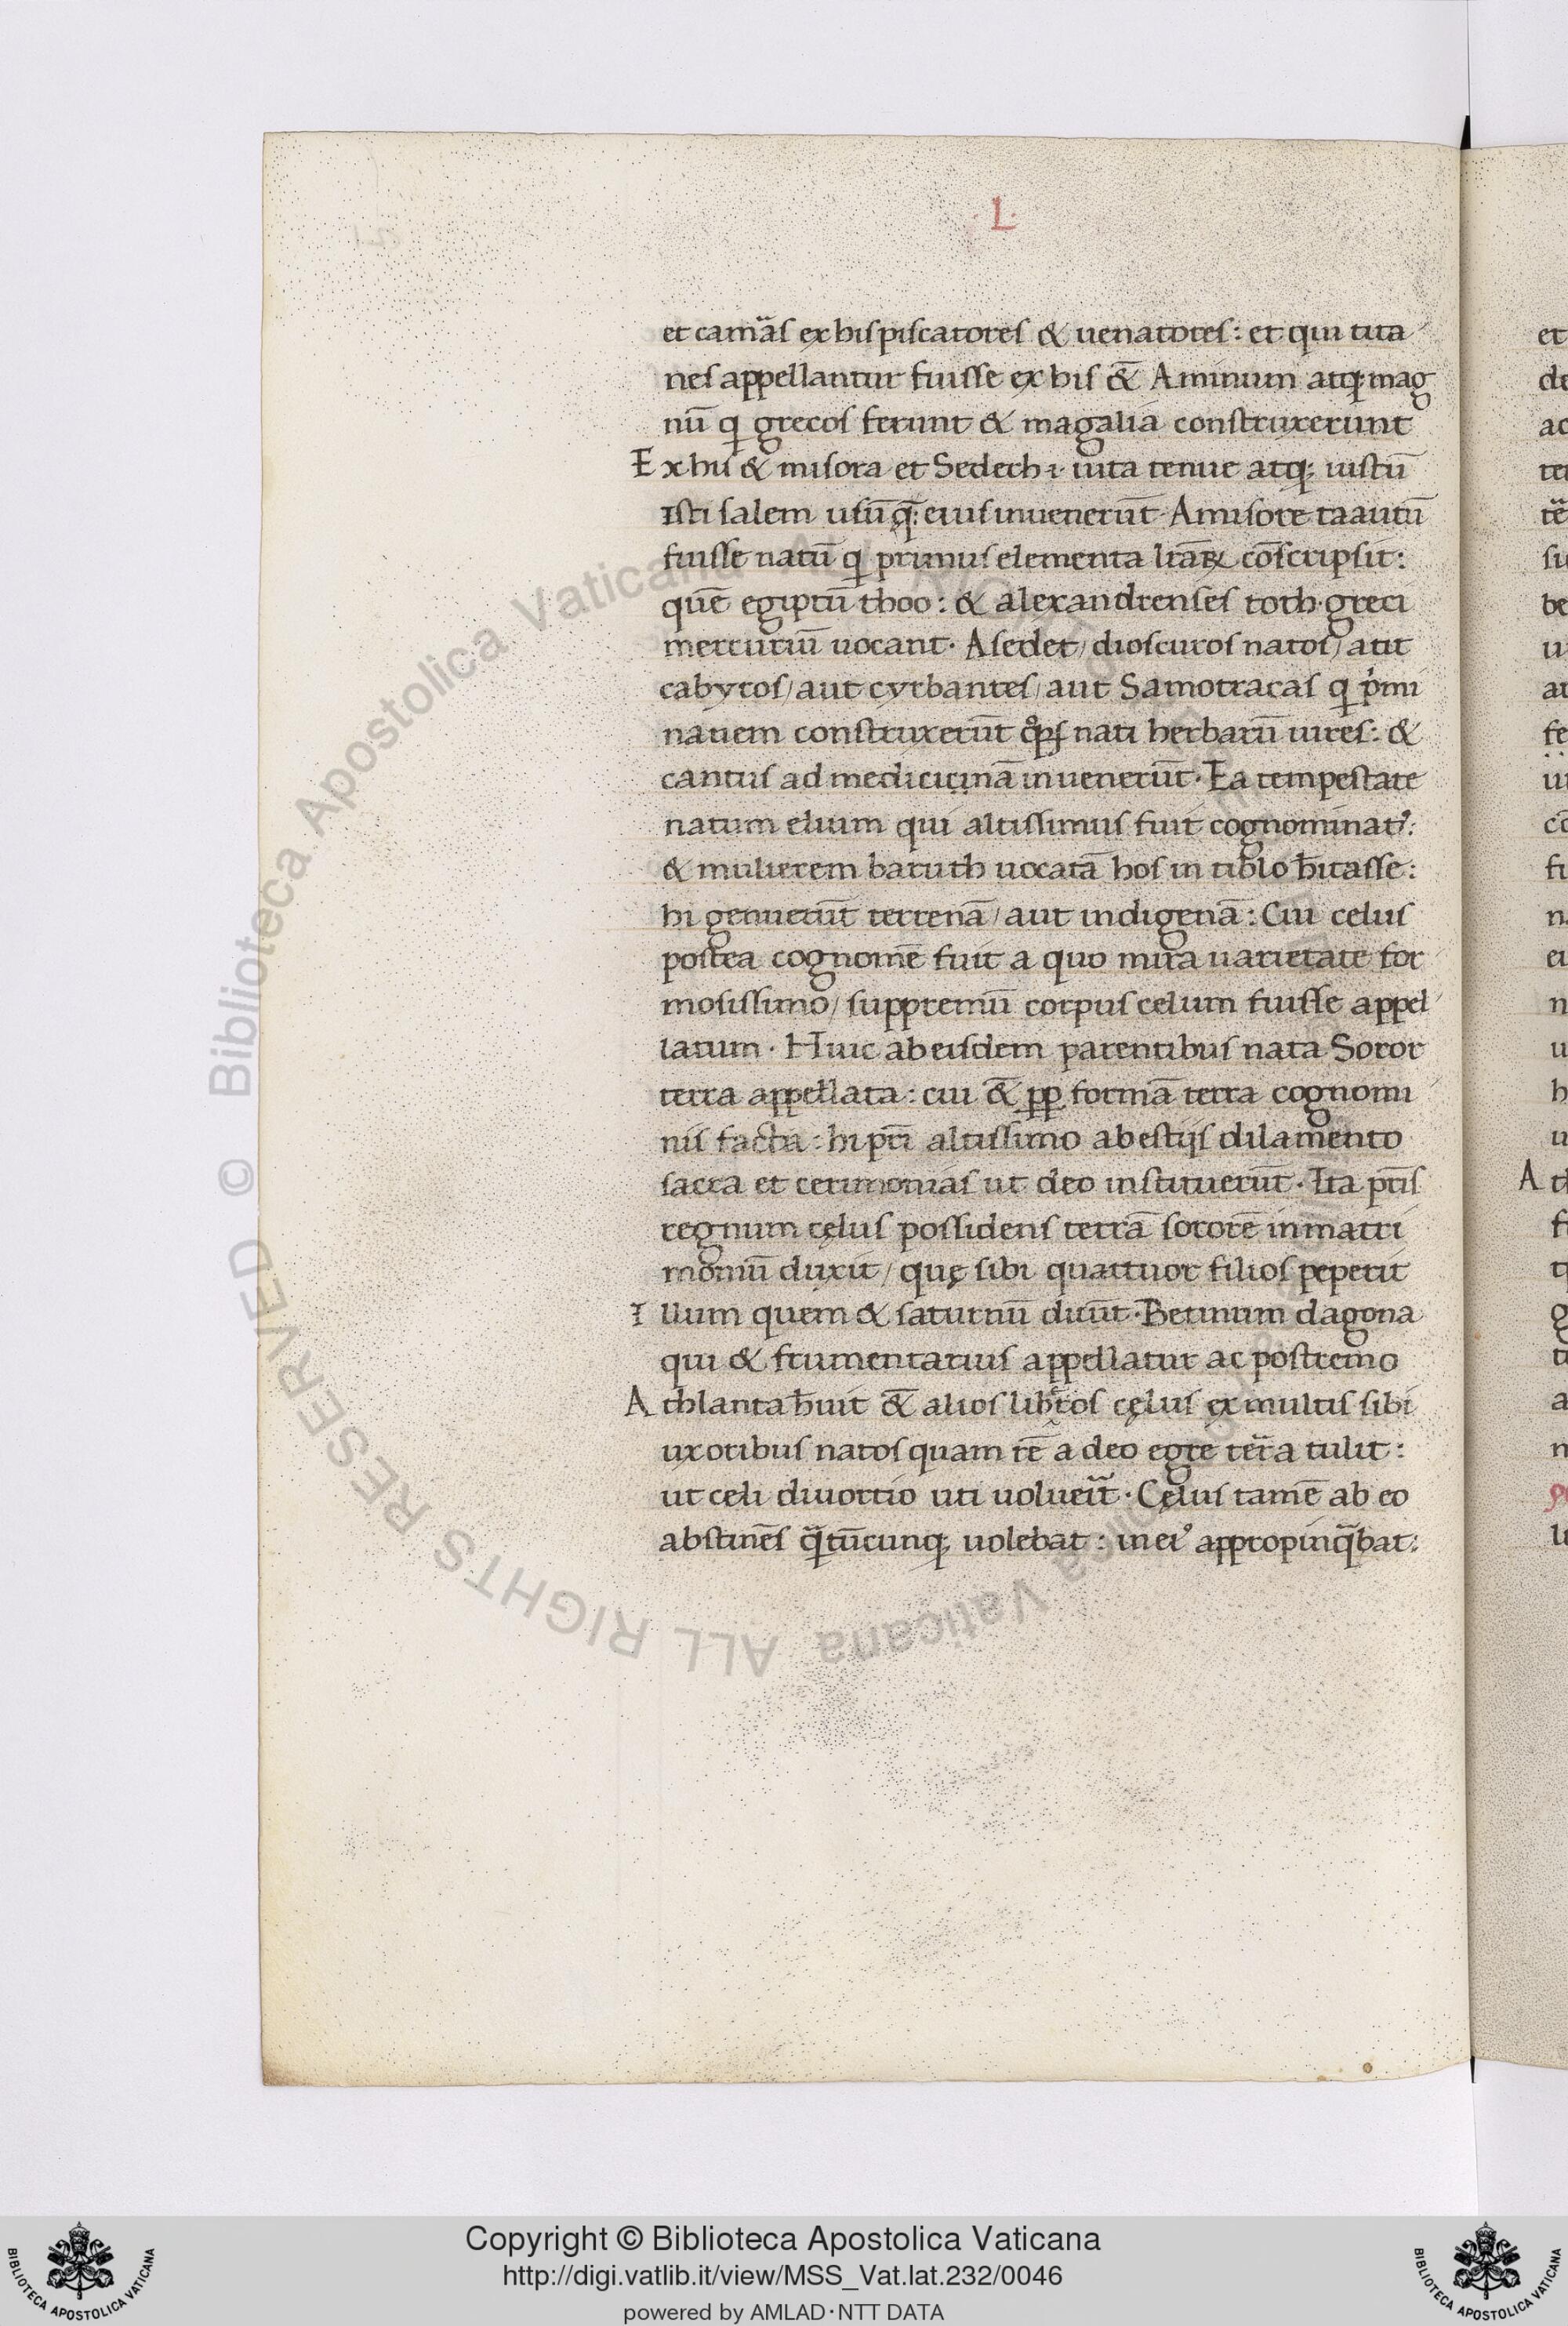 L
et camãs ex his piscatores & uenatores: et qui tita
nes appellantur fuisse ex his &̃ Aminium atq; mag
nū q grecos ferunt & magalia construxerunt
Ex his & misora et Sedech .i. iuta tenue atq; iustū
isti salem usūq̄: eius inuenerūt. A misore taautū
fuisse natū q primus elementa lrāꝝ cōscripsit:
quē egiptū thoo: & alexandrenses toth. greci
mercuriū uocant. A sedet/ dioscuros natos/ aut
cabyros/ aut cyrbantes/ aut Samotracas q pͥmi
nauem construxerūt nati herbarū uires: &
cantus ad medicicinā inuenerūt. Ea tempestate
natum elium qui altissimus fuit cognominatꝰ:
& mulierem baruth uocatā hos in tiblo hitasse:
hi genuerūt terrenā/ aut indigenā: Cui celus
postea cognomē fuit a quo mira uarietate for
mosissimo/ suppremū corpus celum fuisse appel
latum. Huic ab eisdem parentibus nata Soror
terra appellata: cui &̃ ꝓp formā terra cognomi
nis facta: hi pr̄i altissimo ab estijs dilamento
sacra et cerimonias ut deo instituerūt. Ita pr̄is
regnum cęlus possidens terrā sororē in matri
moniū duxit/ quę sibi quattuor filios peperit
Illum quem & saturnū diuūt. Betinum dagona
qui & frumentarius appellatur ac postremo
Athlanta huit &̃ alios libros cęlus ex multis sibi
uxoribus natos quam rē a deo egre terra tulit:
ut celi diuortio uti uolueīt. Cęlus tamē ab eo
abstinēs q̄tūcunq; uolebat: in eiꝰ appropinq̄bat:
et
de
ac
A
© Biblioteca Apostolica Vaticana ALL RIGHTS RESERVED
Copyright © Biblioteca Apostolica Vaticana
http://digi.vatlib.it/view/MSS_Vat.lat.232/0046
powered by AMLAD·NTT DATA
BIBLIOTECA APOSTOLICA VATICANA
BIBLIOTECA APOSTOLICA VATICANA